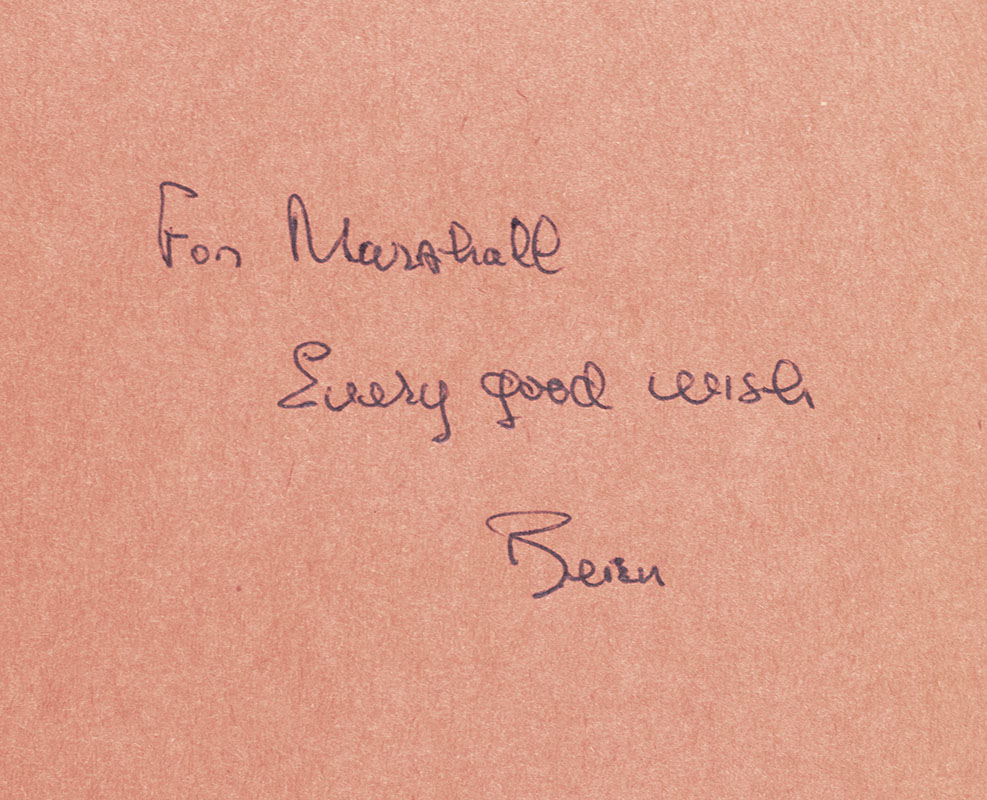 For Marshall
Every good wish